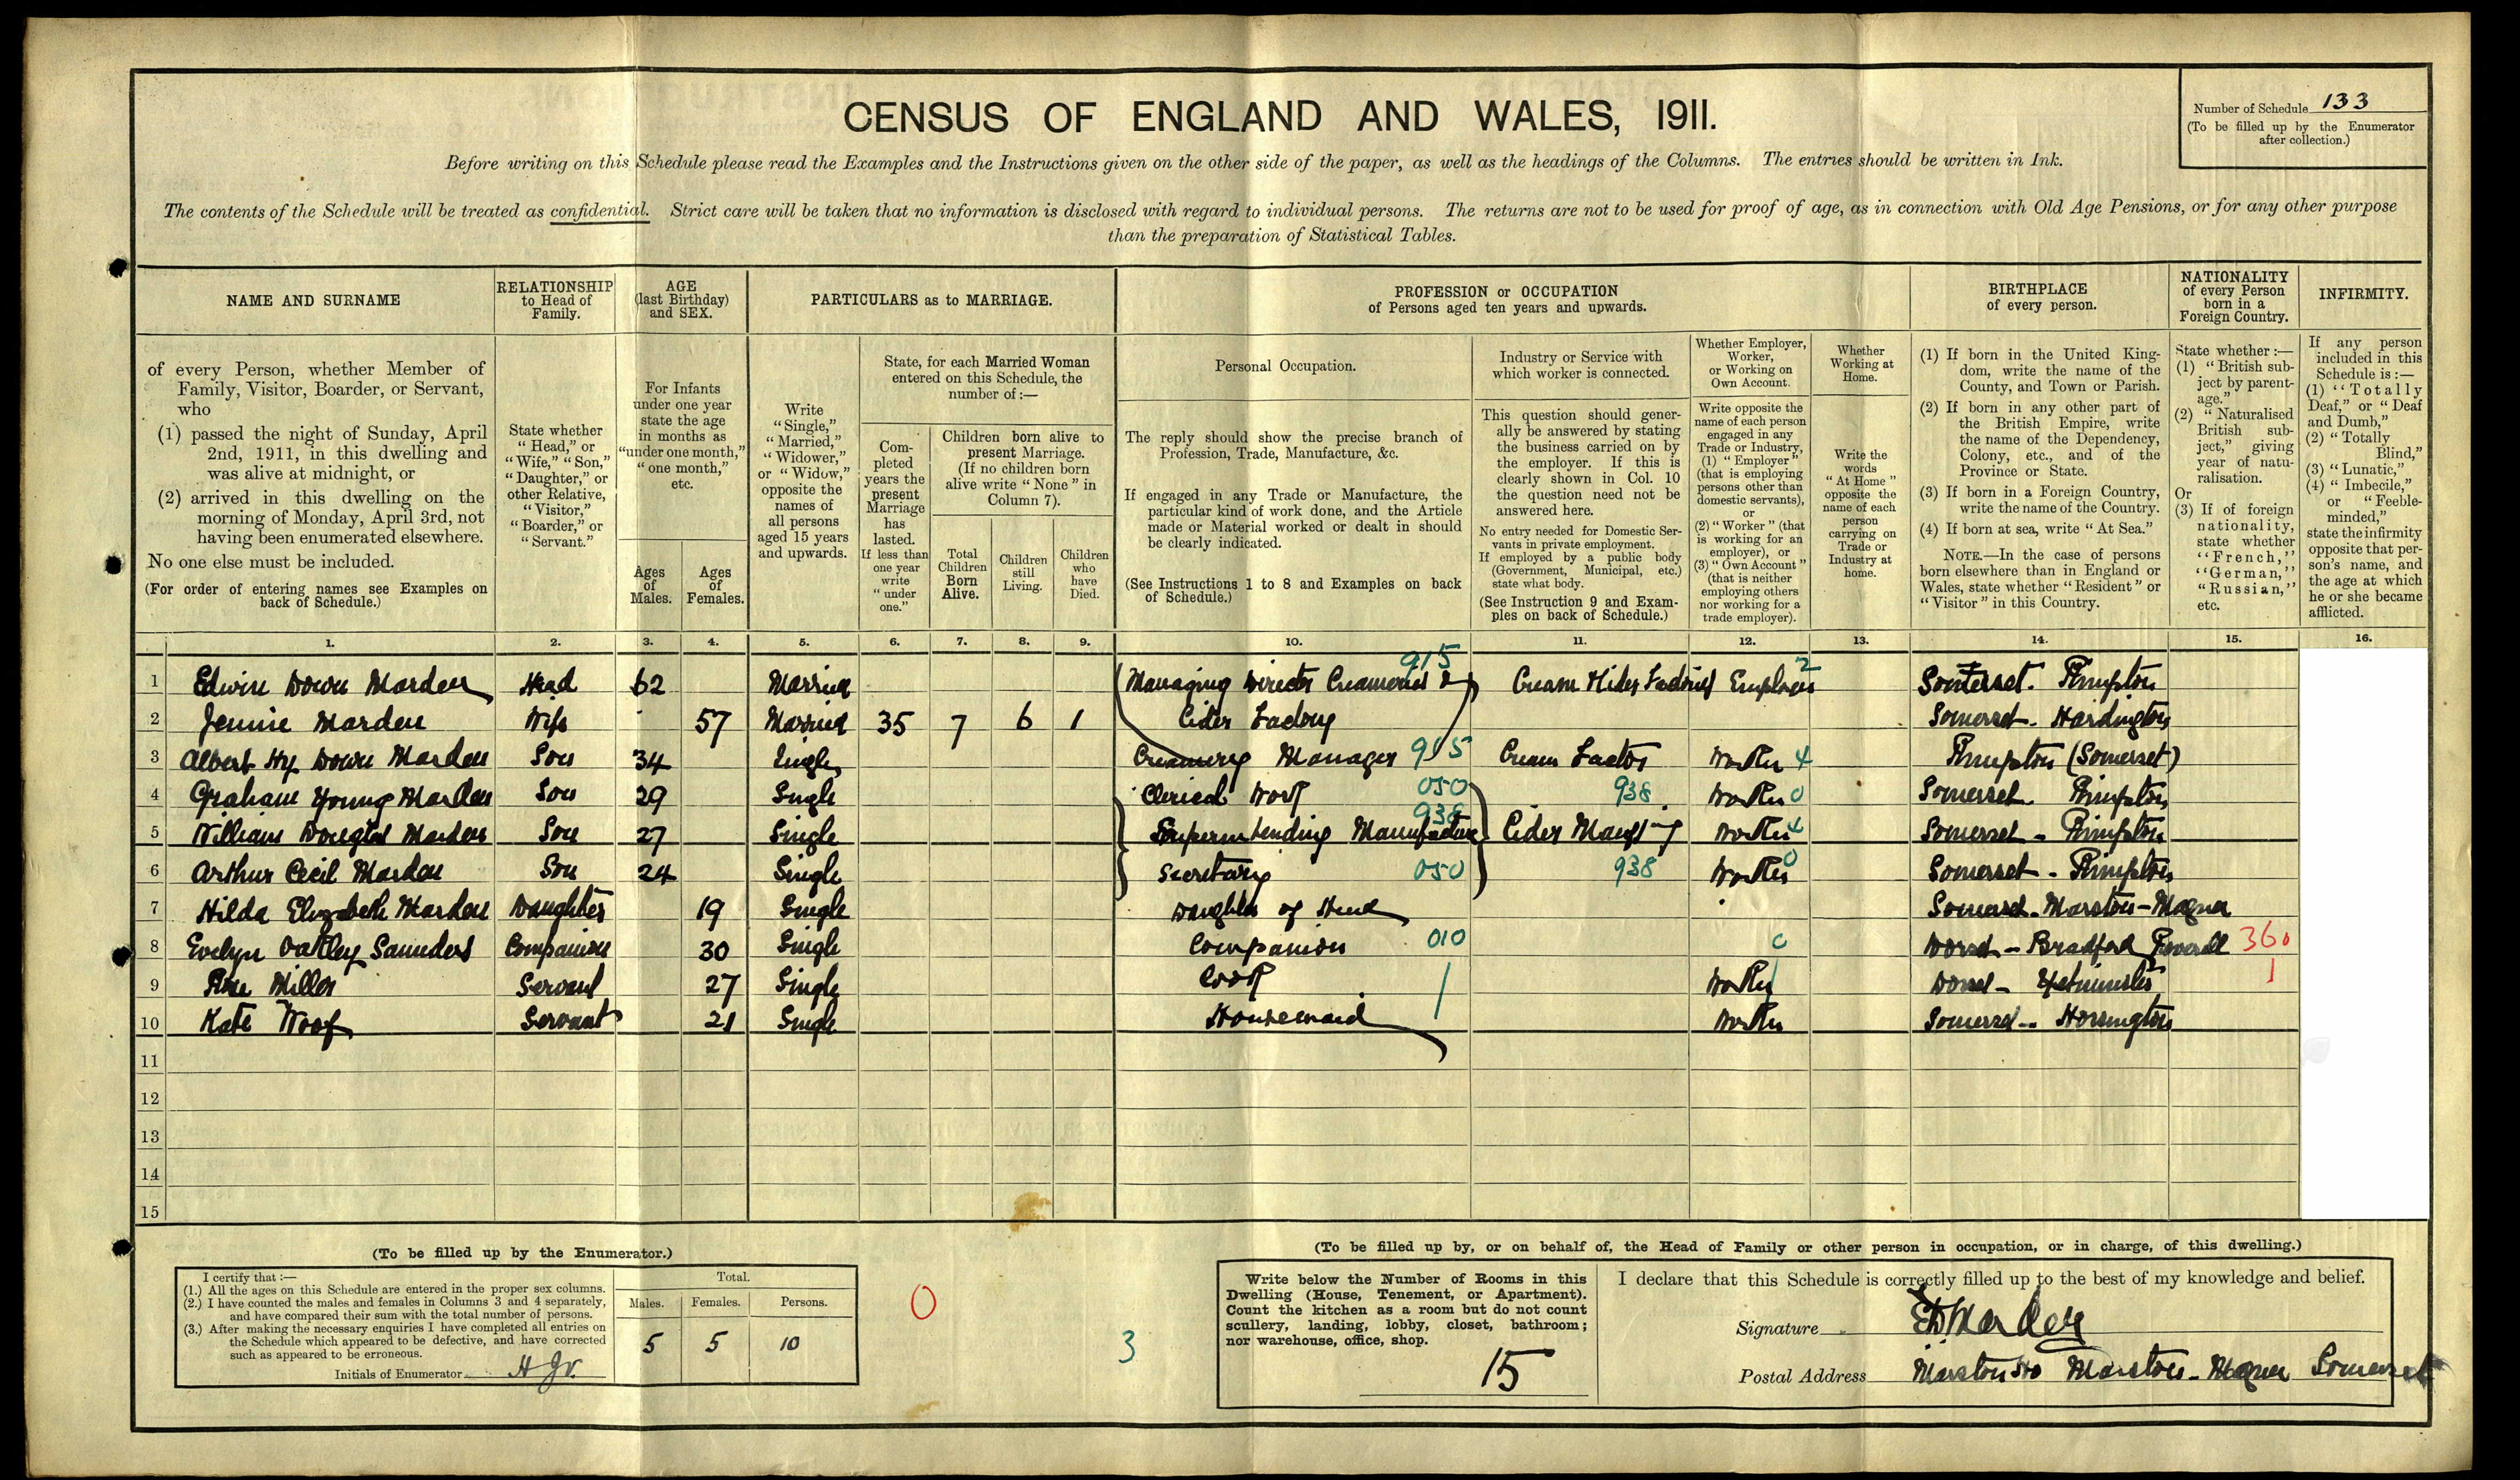 CENSUS OF ENGLAND AND WALES, 1911.
Number of Schedule 133
(To be filled up by the Enumerator after collection.)
Before writing on this Schedule please read the Examples and the Instructions given on the other side of the paper, as well as the headings of the Columns. The entries should be written in Ink.
The contents of the Schedule will be treated as confidential. Strict care will be taken that no information is disclosed with regard to individual persons. The returns are not to be used for proof of age, as in connection with Old Age Pensions, or for any other purpose
than the preparation of Statistical Tables.
NAME AND SURNAME
RELATIONSHIP to Head of Family.
AGE (last Birthday) and SEX.
PARTICULARS as to MARRIAGE.
PROFESSION or OCCUPATION of Persons aged ten years and upwards.
BIRTHPLACE of every person.
NATIONALITY of every Person born in a Foreign Country.
INFIRMITY.
of every Person, whether Member of Family, Visitor, Boarder, or Servant, who
(1) passed the night of Sunday, April 2nd, 1911, in this dwelling and was alive at midnight, or
(2) arrived in this dwelling on the morning of Monday, April 3rd, not having been enumerated elsewhere.
No one else must be included.
(For order of entering names see Examples on back of Schedule.)
State whether "Head," or "Wife," "Son," "Daughter," or other Relative, "Visitor," "Boarder," or "Servant."
For Infants under one year state the age in months as "under one month," "one month," etc.
Ages of Males.
Ages of Females.
Write "Single," "Married," "Widower," or "Widow," opposite the names of all persons aged 15 years and upwards.
State, for each Married Woman entered on this Schedule, the number of :—
Completed years the present Marriage has lasted. If less than one year write "under one."
Children born alive to present Marriage. (If no children born alive write "None" in Column 7).
Total Children Born Alive.
Children still Living.
Children who have Died.
Personal Occupation.
The reply should show the precise branch of Profession, Trade, Manufacture, &c.
If engaged in any Trade or Manufacture, the particular kind of work done, and the Article made or Material worked or dealt in should be clearly indicated.
(See Instructions 1 to 8 and Examples on back of Schedule.)
Industry or Service with which worker is connected.
This question should generally be answered by stating the business carried on by the employer. If this is clearly shown in Col. 10 the question need not be answered here.
No entry needed for Domestic Servants in private employment. If employed by a public body (Government, Municipal, etc.) state what body.
(See Instruction 9 and Examples on back of Schedule.)
Whether Employer, Worker, or Working on Own Account.
Write opposite the name of each person engaged in any Trade or Industry, (1) "Employer" (that is employing persons other than domestic servants), or (2) "Worker" (that is working for an employer), or (3) "Own Account" (that is neither employing others nor working for a trade employer).
Whether Working at Home.
Write the words "At Home" opposite the name of each person carrying on Trade or Industry at home.
(1) If born in the United Kingdom, write the name of the County, and Town or Parish.
(2) If born in any other part of the British Empire, write the name of the Dependency, Colony, etc., and of the Province or State.
(3) If born in a Foreign Country, write the name of the Country.
(4) If born at sea, write "At Sea."
NOTE.—In the case of persons born elsewhere than in England or Wales, state whether "Resident" or "Visitor" in this Country.
State whether :—
(1) "British subject by parentage."
(2) "Naturalised British subject," giving year of naturalisation.
Or
(3) If of foreign nationality, state whether "French," "German," "Russian," etc.
If any person included in this Schedule is :—
(1) "Totally Deaf," or "Deaf and Dumb,"
(2) "Totally Blind,"
(3) "Lunatic,"
(4) "Imbecile," or "Feeble-minded,"
state the infirmity opposite that person's name, and the age at which he or she became afflicted.
1. 2. 3. 4. 5. 6. 7. 8. 9. 10. 11. 12. 13. 14. 15. 16.
1 Edwin Down Marden Head 62 Married Managing Director Creameries & 915 Cream & Cider Factories Employer 2 Somerset. Rimpton
2 Jennie Marden Wife 57 Married 35 7 6 1 Cider Factory Somerset - Hardington
3 Albert Hy Down Marden Son 34 Single Creamery Manager 915 Cream Factor Worker 4 Rimpton (Somerset)
4 Graham Young Marden Son 29 Single Clerical Work 050 938 Worker 0 Somerset. Rimpton
5 William Douglas Marden Son 27 Single Superintending Manufacture 938 Cider Manfg Worker 4 Somerset - Rimpton
6 Arthur Cecil Marden Son 24 Single Secretary 050 938 Worker 0 Somerset - Rimpton
7 Hilda Elizabeth Marden Daughter 19 Single Daughter of Head Somerset - Marston - Magna
8 Evelyn Oatley Saunders Companion 30 Single Companion 010 0 Dorset - Bradford Peverell 360
9 Rose Miller Servant 27 Single Cook Worker Dorset - Yetminster 1
10 Kate Woof Servant 21 Single Housemaid Worker Somerset - Horsington
11
12
13
14
15
(To be filled up by the Enumerator.)
I certify that :—
(1.) All the ages on this Schedule are entered in the proper sex columns.
(2.) I have counted the males and females in Columns 3 and 4 separately, and have compared their sum with the total number of persons.
(3.) After making the necessary enquiries I have completed all entries on the Schedule which appeared to be defective, and have corrected such as appeared to be erroneous.
Initials of Enumerator
Total.
Males. Females. Persons.
5 5 10
0
3
(To be filled up by, or on behalf of, the Head of Family or other person in occupation, or in charge, of this dwelling.)
Write below the Number of Rooms in this Dwelling (House, Tenement, or Apartment). Count the kitchen as a room but do not count scullery, landing, lobby, closet, bathroom; nor warehouse, office, shop.
15
I declare that this Schedule is correctly filled up to the best of my knowledge and belief.
Signature ED Marden
Postal Address Marston Ho Marston - Magna Somerset